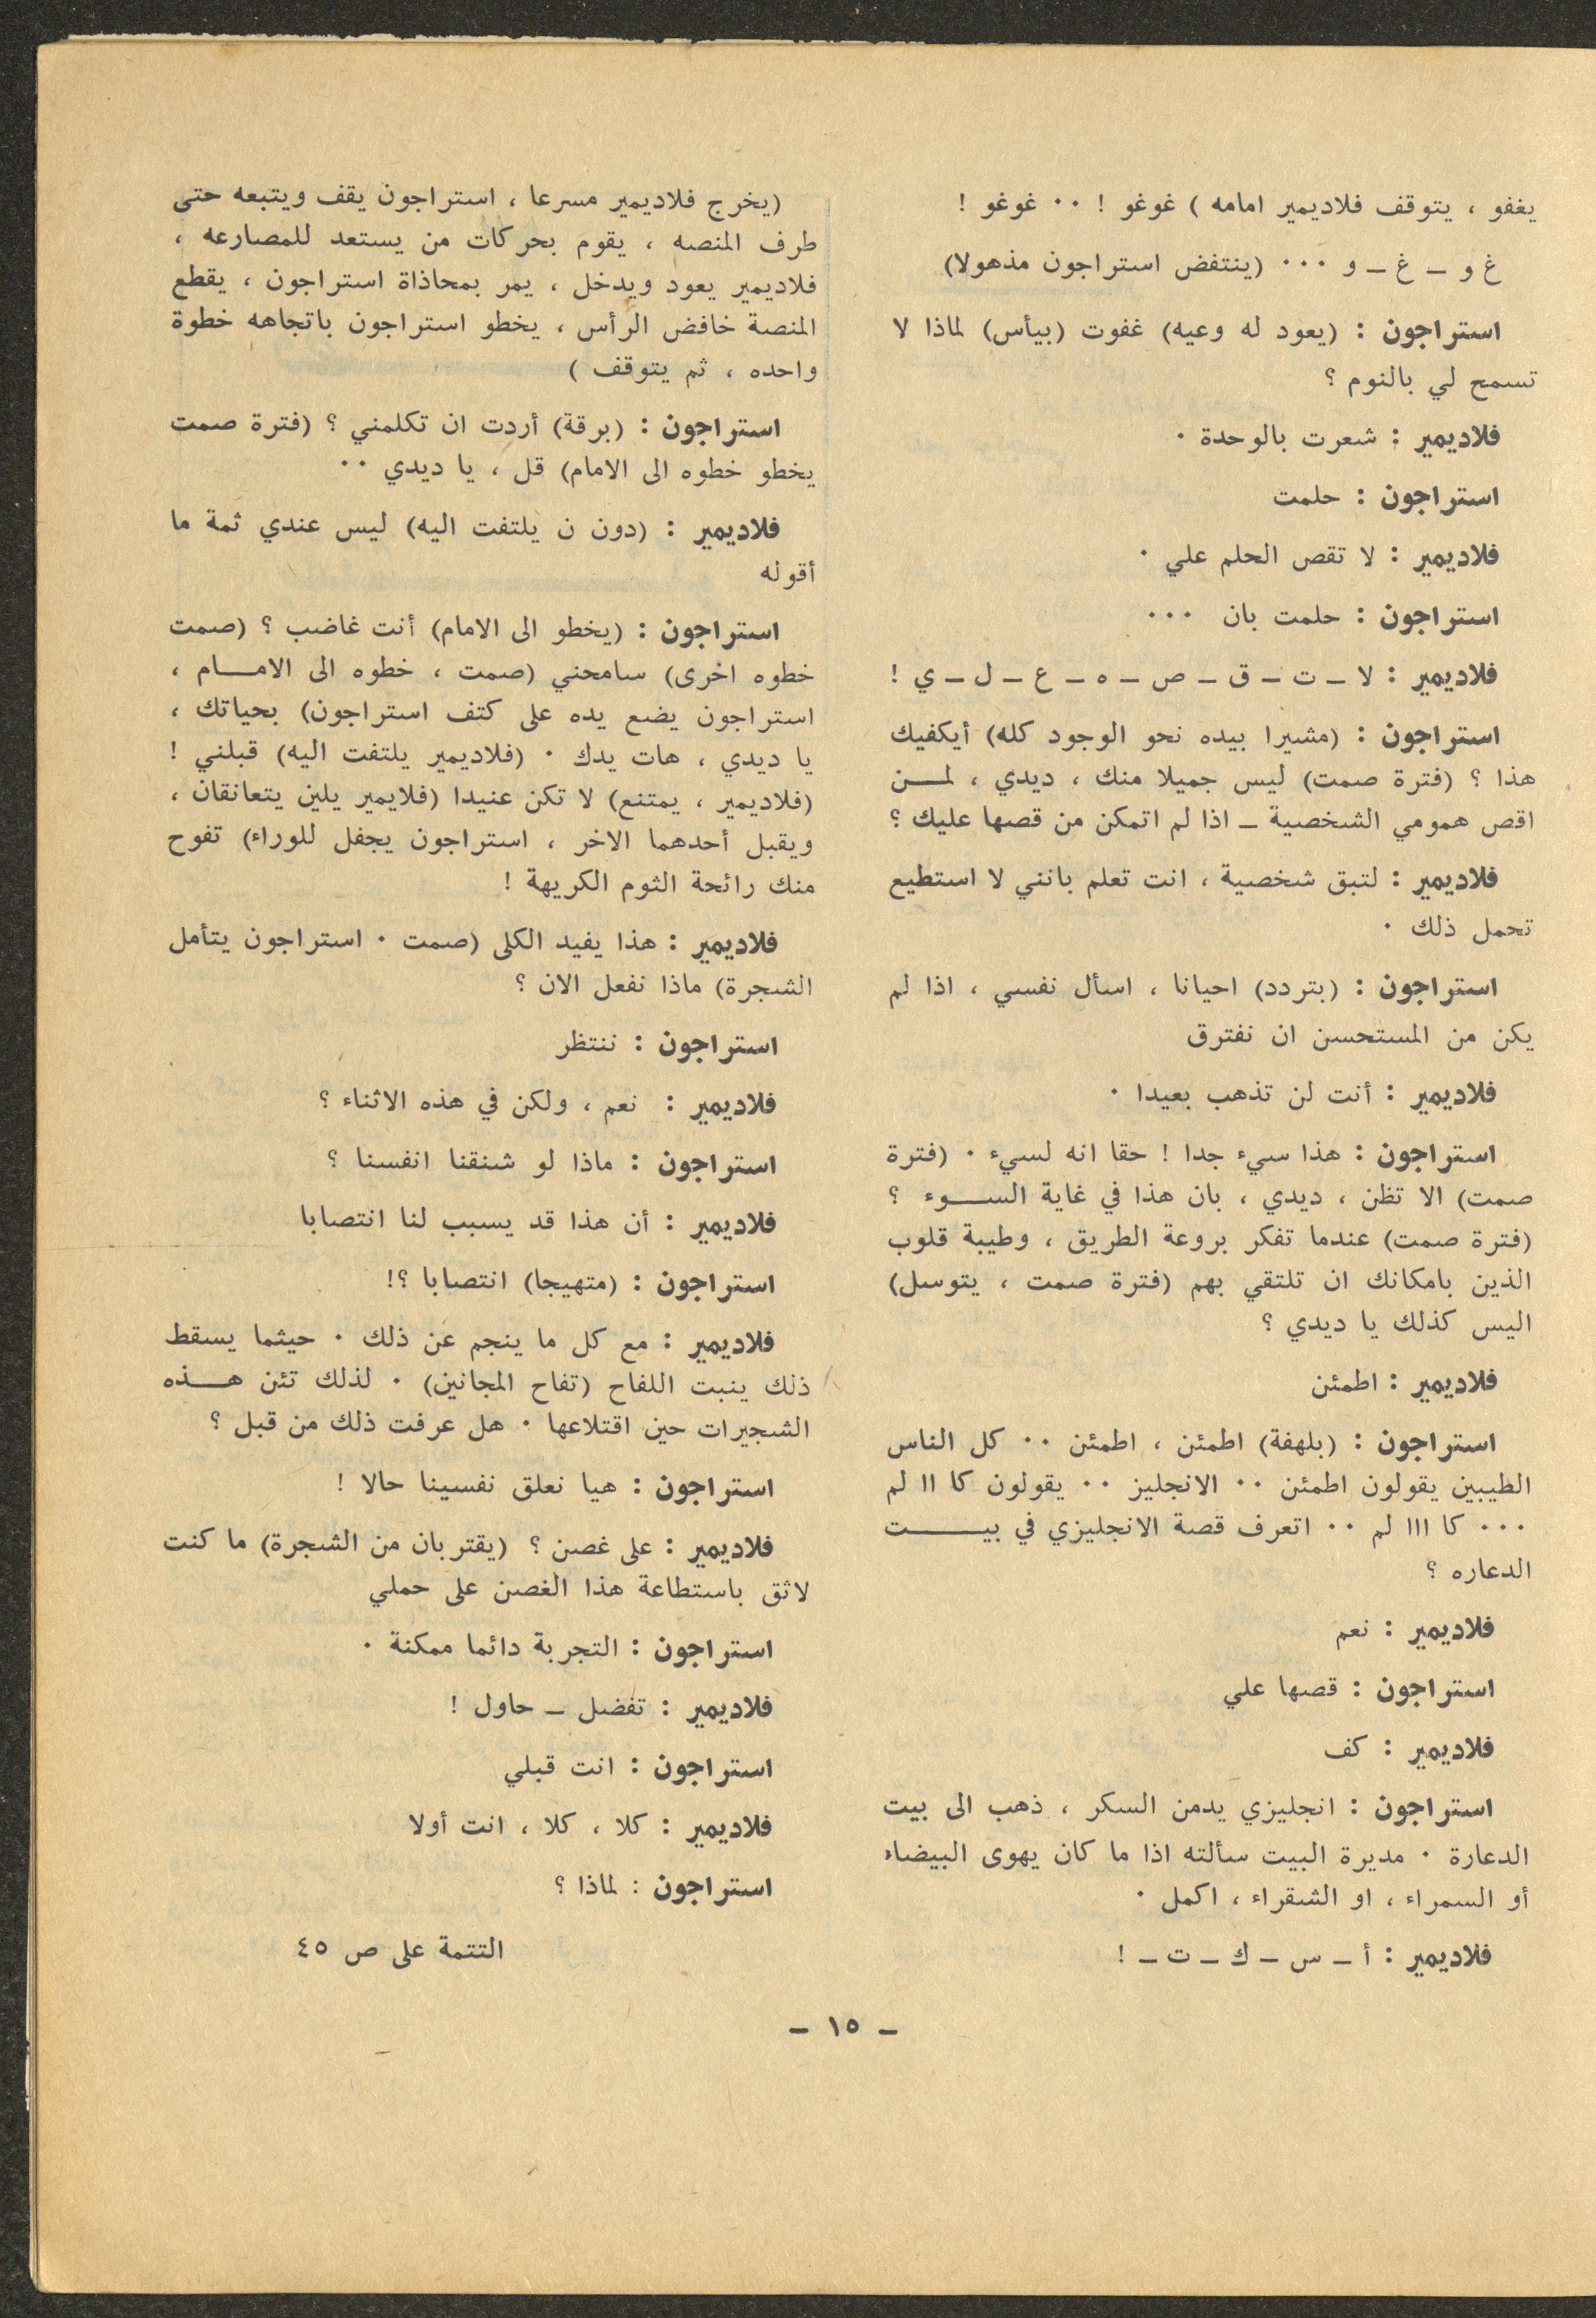 يغفو ، يتوقف فلاديمير امامه ) غوغو ! ٠٠ غوغو !
غ و ـ غ ـ و ٠٠٠ (ينتفض استراجون مذهولا)
استراجون : (يعود له وعيه) غفوت (بيأس) لماذا لا
تسمح لي بالنوم ؟
فلاديمير : شعرت بالوحدة ٠
استراجون : حلمت
فلاديمير : لا تقص الحلم علي ٠
استراجون : حلمت بان ٠٠٠
فلاديمير : لا ـ ت ـ ق ـ ص ـ ه ـ ع ـ ل ـ ي !
استراجون : (مشيرا بيده نحو الوجود كله) أيكفيك
هذا ؟ (فترة صمت) ليس جميلا منك ، ديدي ، لمـــن
اقص همومي الشخصية ـ اذا لم اتمكن من قصها عليك ؟
فلاديمير : لتبق شخصية ، انت تعلم بانني لا استطيع
تحمل ذلك ٠
استراجون : (بتردد) احيانا ، اسأل نفسي ، اذا لم
يكن من المستحسن ان نفترق
فلاديمير : أنت لن تذهب بعيدا ٠
استراجون : هذا سيء جدا ! حقا انه لسيء ٠ (فترة
صمت) الا تظن ، ديدي ، بان هذا في غاية الســـوء ؟
(فترة صمت) عندما تفكر بروعة الطريق ، وطيبة قلوب
الذين بامكانك ان تلتقي بهم (فترة صمت ، يتوسل)
اليس كذلك يا ديدي ؟
فلاديمير : اطمئن
استراجون : (بلهفة) اطمئن ، اطمئن ٠٠ كل الناس
الطيبين يقولون اطمئن ٠٠ الانجليز ٠٠ يقولون كا اا لم
٠٠٠ كا ااا لم ٠٠ اتعرف قصة الانجليزي في بيـــــت
الدعاره ؟
فلاديمير : نعم
استراجون : قصها علي
فلاديمير : كف
استراجون : انجليزي يدمن السكر ، ذهب الى بيت
الدعارة ٠ مديرة البيت سألته اذا ما كان يهوى البيضاء
أو السمراء ، او الشقراء ، اكمل ٠
فلاديمير : أ ـ س ـ ك ـ ت ـ !
(يخرج فلاديمير مسرعا ، استراجون يقف ويتبعه حتى
طرف المنصه ، يقوم بحركات من يستعد للمصارعه ،
فلاديمير يعود ويدخل ، يمر بمحاذاة استراجون ، يقطع
المنصة خافض الرأس ، يخطو استراجون باتجاهه خطوة
واحده ، ثم يتوقف )
استراجون : (برقة) أردت ان تكلمني ؟ (فترة صمت
يخطو خطوه الى الامام) قل ، يا ديدي ٠٠
فلاديمير : (دون ن يلتفت اليه) ليس عندي ثمة ما
أقوله
استراجون : (يخطو الى الامام) أنت غاضب ؟ (صمت
خطوه اخرى) سامحني (صمت ، خطوه الى الامـــام ،
استراجون يضع يده على كتف استراجون) بحياتك ،
يا ديدي ، هات يدك ٠ (فلاديمير يلتفت اليه) قبلني !
(فلاديمير ، يمتنع) لا تكن عنيدا (فلايمير يلين يتعانقان ،
ويقبل أحدهما الاخر ، استراجون يجفل للوراء) تفوح
منك رائحة الثوم الكريهة !
فلاديمير : هذا يفيد الكلى (صمت ٠ استراجون يتأمل
الشجرة) ماذا نفعل الان ؟
استراجون : ننتظر
فلاديمير : نعم ، ولكن في هذه الاثناء ؟
استراجون : ماذا لو شنقنا انفسنا ؟
فلاديمير : أن هذا قد يسبب لنا انتصابا
استراجون : (متهيجا) انتصابا ؟!
فلاديمير : مع كل ما ينجم عن ذلك ٠ حيثما يسقط
ذلك ينبت اللفاح (تفاح المجانين) ٠ لذلك تئن هـــذه
الشجيرات حين اقتلاعها ٠ هل عرفت ذلك من قبل ؟
استراجون : هيا نعلق نفسينا حالا !
فلاديمير : على غصن ؟ (يقتربان من الشجرة) ما كنت
لاثق باستطاعة هذا الغصن على حملي
استراجون : التجربة دائما ممكنة ٠
فلاديمير : تفضل ـ حاول !
استراجون : انت قبلي
فلاديمير : كلا ، كلا ، انت أولا
استراجون : لماذا ؟
التتمة على ص ٤٥
ـ ١٥ ـ